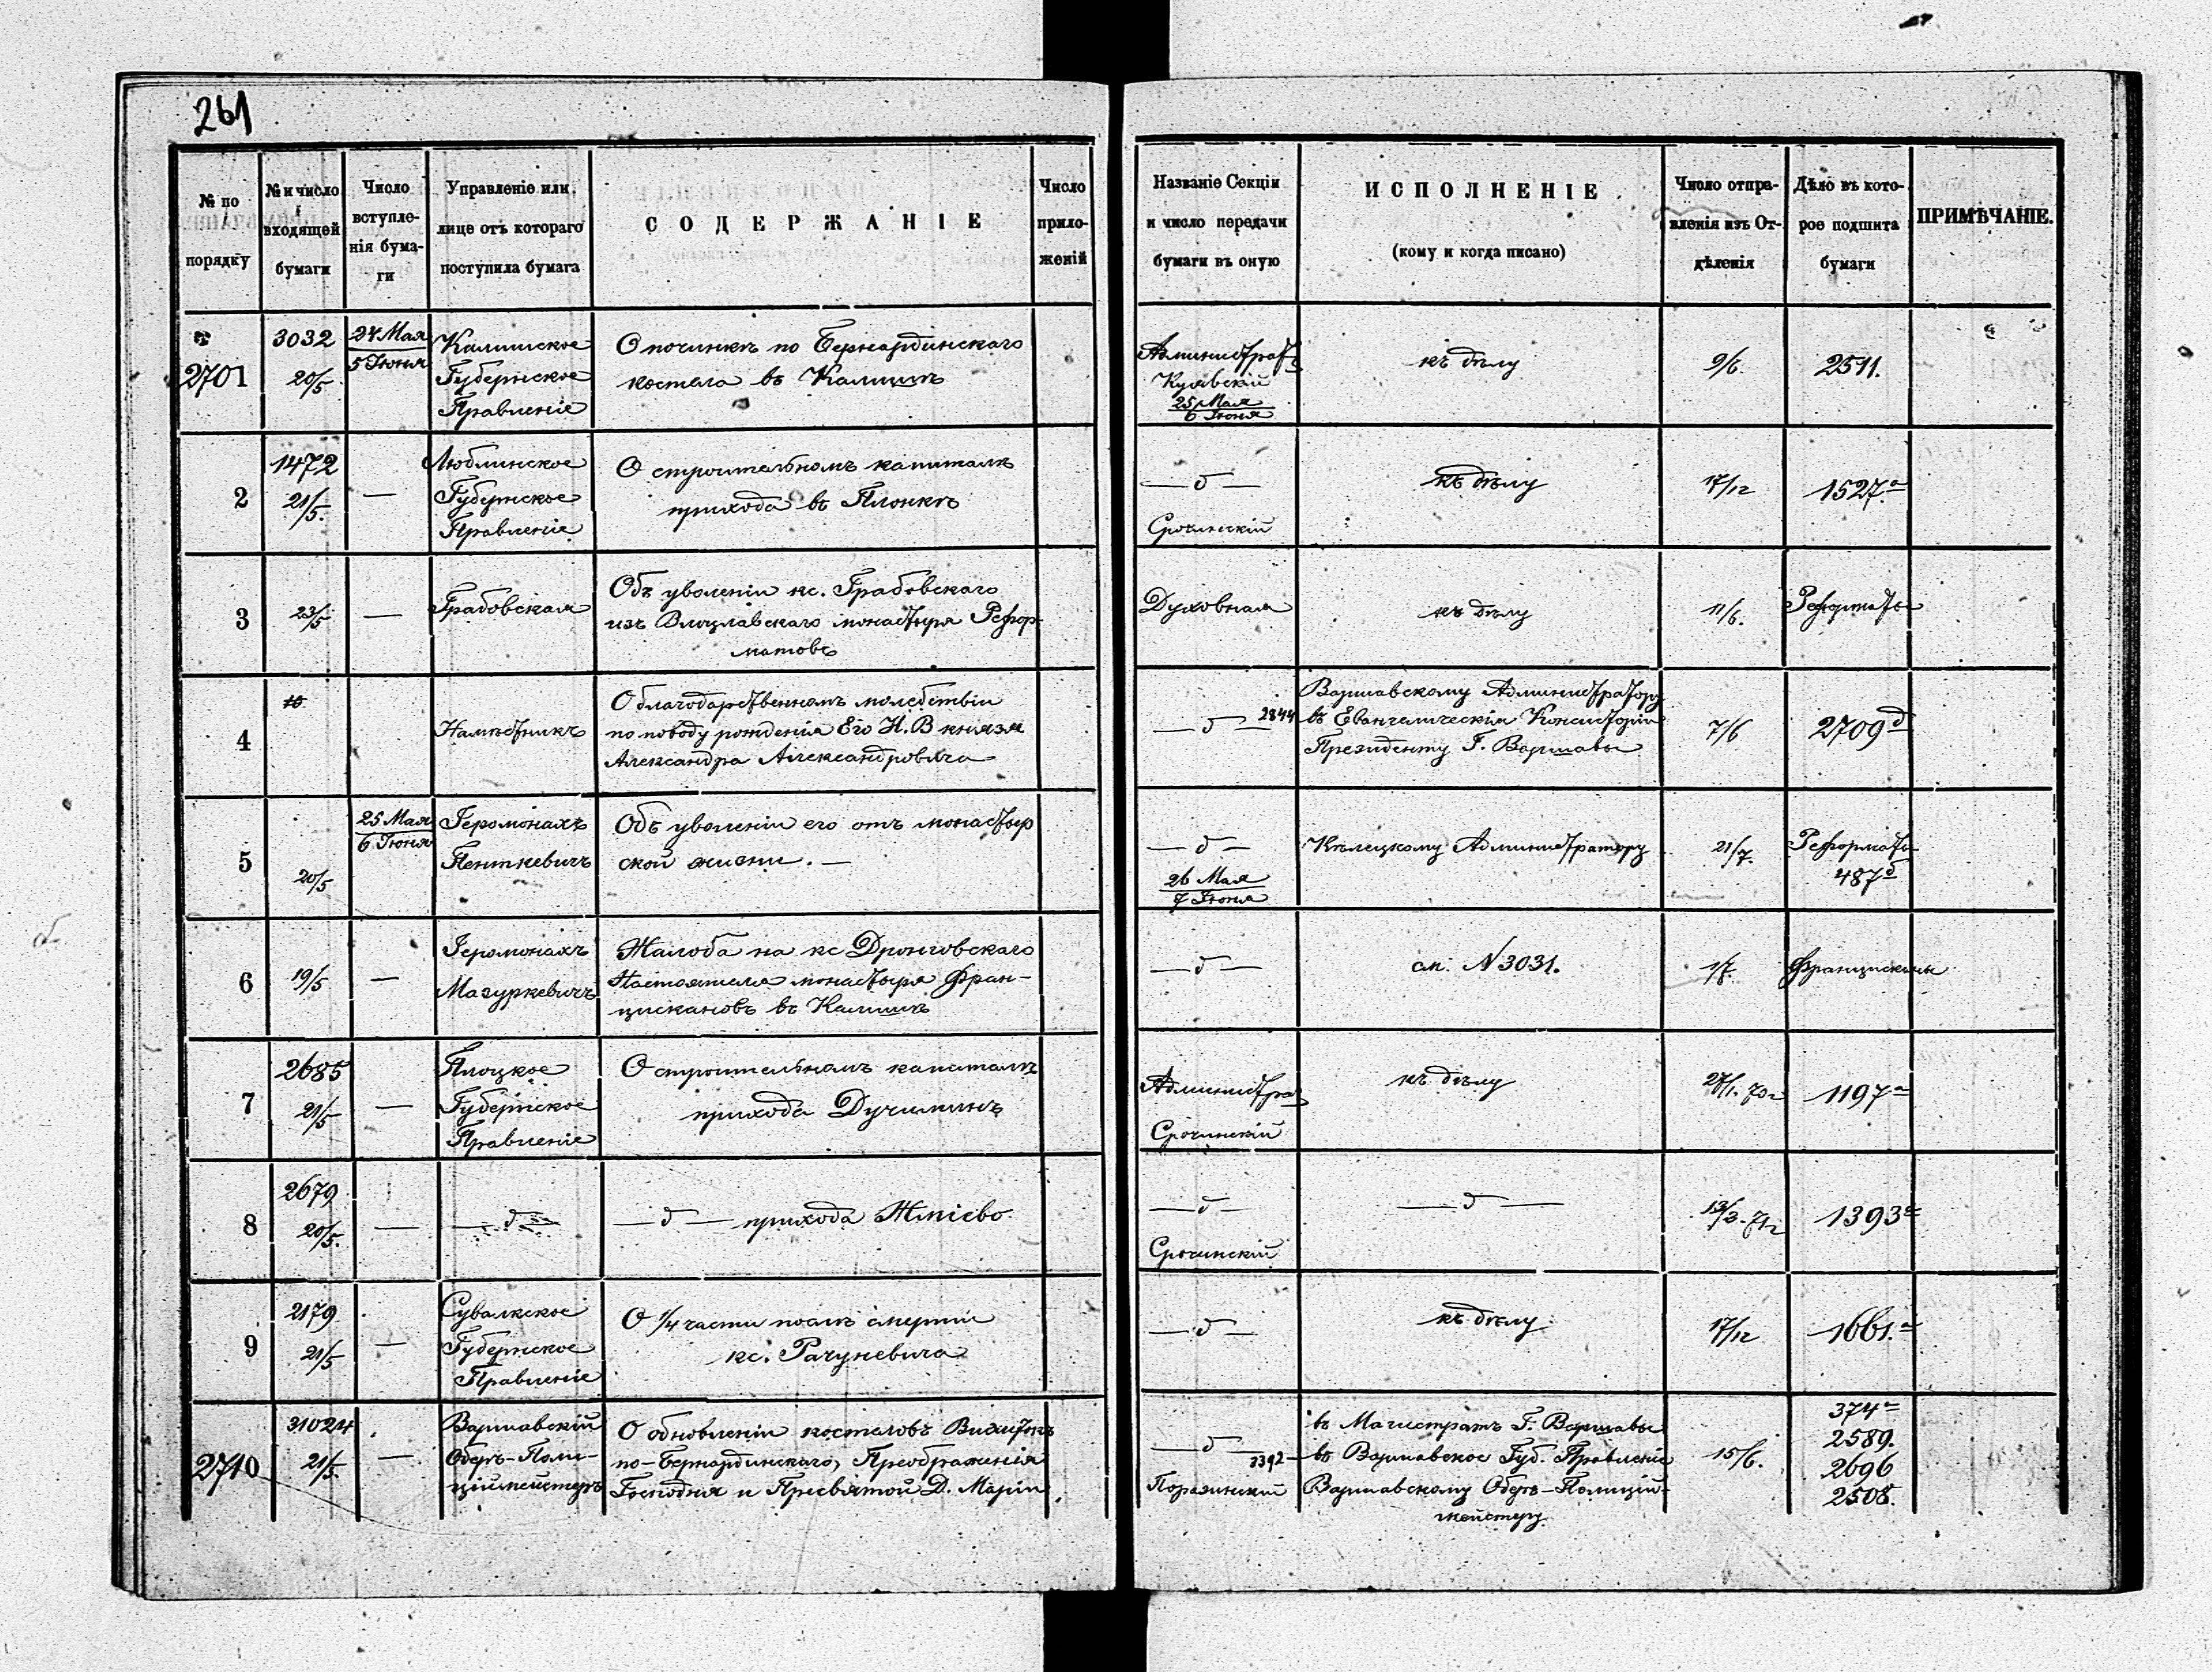 261
№ по порядку
№ и число входящей бумаги
Число вступле-
нія бума-
ги
Управленіе или
лице отъ котораго
поступила бумага
СОДЕРЖАНІЕ
Число
прило-
женій
Названіе Секціи
и число передачи
бумаги въ оную
ИСПОЛНЕНІЕ
(кому и когда писано)
Число отпра-
вленія изъ От-
дѣленія
Дѣло въ кото-
рое подшита
бумаги
ПРИМѢЧАНІЕ.
2701
3032
20/5
24 Мая
5 Іюня
Калишское
Губернское
Правленіе
О починкѣ по Бернардинскаго
костела въ Калишѣ
Администрат
Куявскій
25 Мая
6 Іюня
къ дѣлу
9/6
2511.
2
1472
21/5.
—
Люблинское
Губернское
Правленіе
О строительномъ капиталѣ
прихода въ Плонкѣ
— д —
Срочинскій
къ дѣлу
17/12
1527 а
3
23/5
—
Грабовская
Объ уволеніи кс. Грабовскаго
изъ Влоцлавскаго монастыря Рефор-
матовъ
Духовная
къ дѣлу
11/6.
Реформаты
4
Намѣстникъ
О благодарственномъ молебствіи
по поводу рожденія Его И. В князя
Александра Александровича
— д — 2844
Варшавскому Администратору
въ Евангелическія Консисторіи
Президенту Г. Варшавы
7/6
2709 д
5
20/5
25 Мая
6 Іюня
Іеромонахъ
Пенткевичъ
Объ уволеніи его отъ монастыр
ской жизни. —
— д —
26 Мая
7 Іюня
Кѣлецкому Администратору
21/7.
Реформаты
487 д
6
19/5
—
Іеромонахъ
Мазуркевичъ
Жалоба на кс Дронговскаго
Настоятеля монастыря Фран-
цискановъ въ Калишѣ
— д —
см. № 3031.
1/7.
Францисканы
7
2685
21/5
—
Плоцкое
Губернское
Правленіе
О строительномъ капиталѣ
прихода Дучиминъ
Администра
Срочинскій
къ дѣлу
27/1. 70 г
1197 а
8
2679
20/5.
—
— д —
— д — прихода Жміево
— д —
Срочинскій
— д —
13/3. 71 г
1393 а
9
2179
21/5
—
Сувалкское
Губернское
Правленіе
О 1/4 части послѣ смерти
кс. Рачуневича
— д —
къ дѣлу
17/12
1661. а
2710
31024
21/5.
—
Варшавскій
Оберъ-Поли-
ціймейстеръ
О обновленіи костеловъ Визитокъ
по-Бернардинскаго, Преображенія
Господня и Пресвятой Д. Маріи
— д — 3392
въ Магистратъ Г. Варшавы
въ Варшавское Губ. Правленіе
Варшавскому Оберъ-Полицій-
мейстеру
15/6.
374 а
2589.
2696
2508.